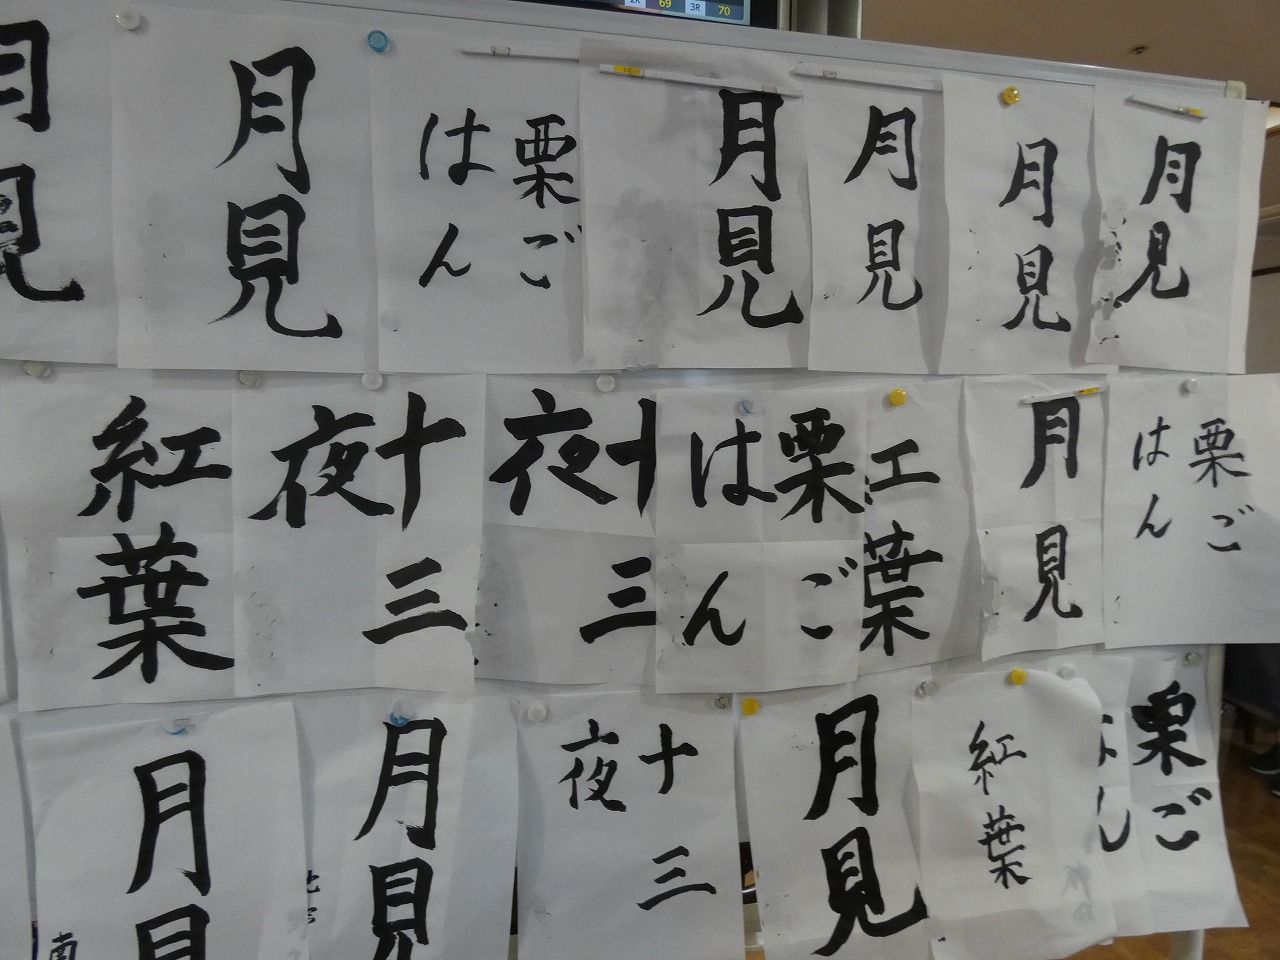 2R 69 3R 70
月見
月見
栗ご
はん
月見
月見
月見
月見
紅葉
十三
夜
十三
夜
栗ご
はん
工葉
月見
栗ご
はん
月見
月見
十三
夜
月見
紅葉
栗ご
はん
南